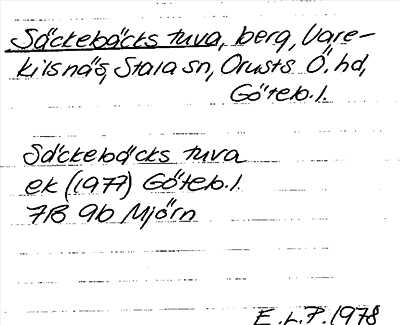 Säckebäcks tuva, berg, Vare-
kilsnäs, Stala sn, Orusts Ö. hd,
Göteb. l.
Säckebäcks tuva
ek (1977) Göteb. l.
7B 9b Mjörn
E.L.P. 1978